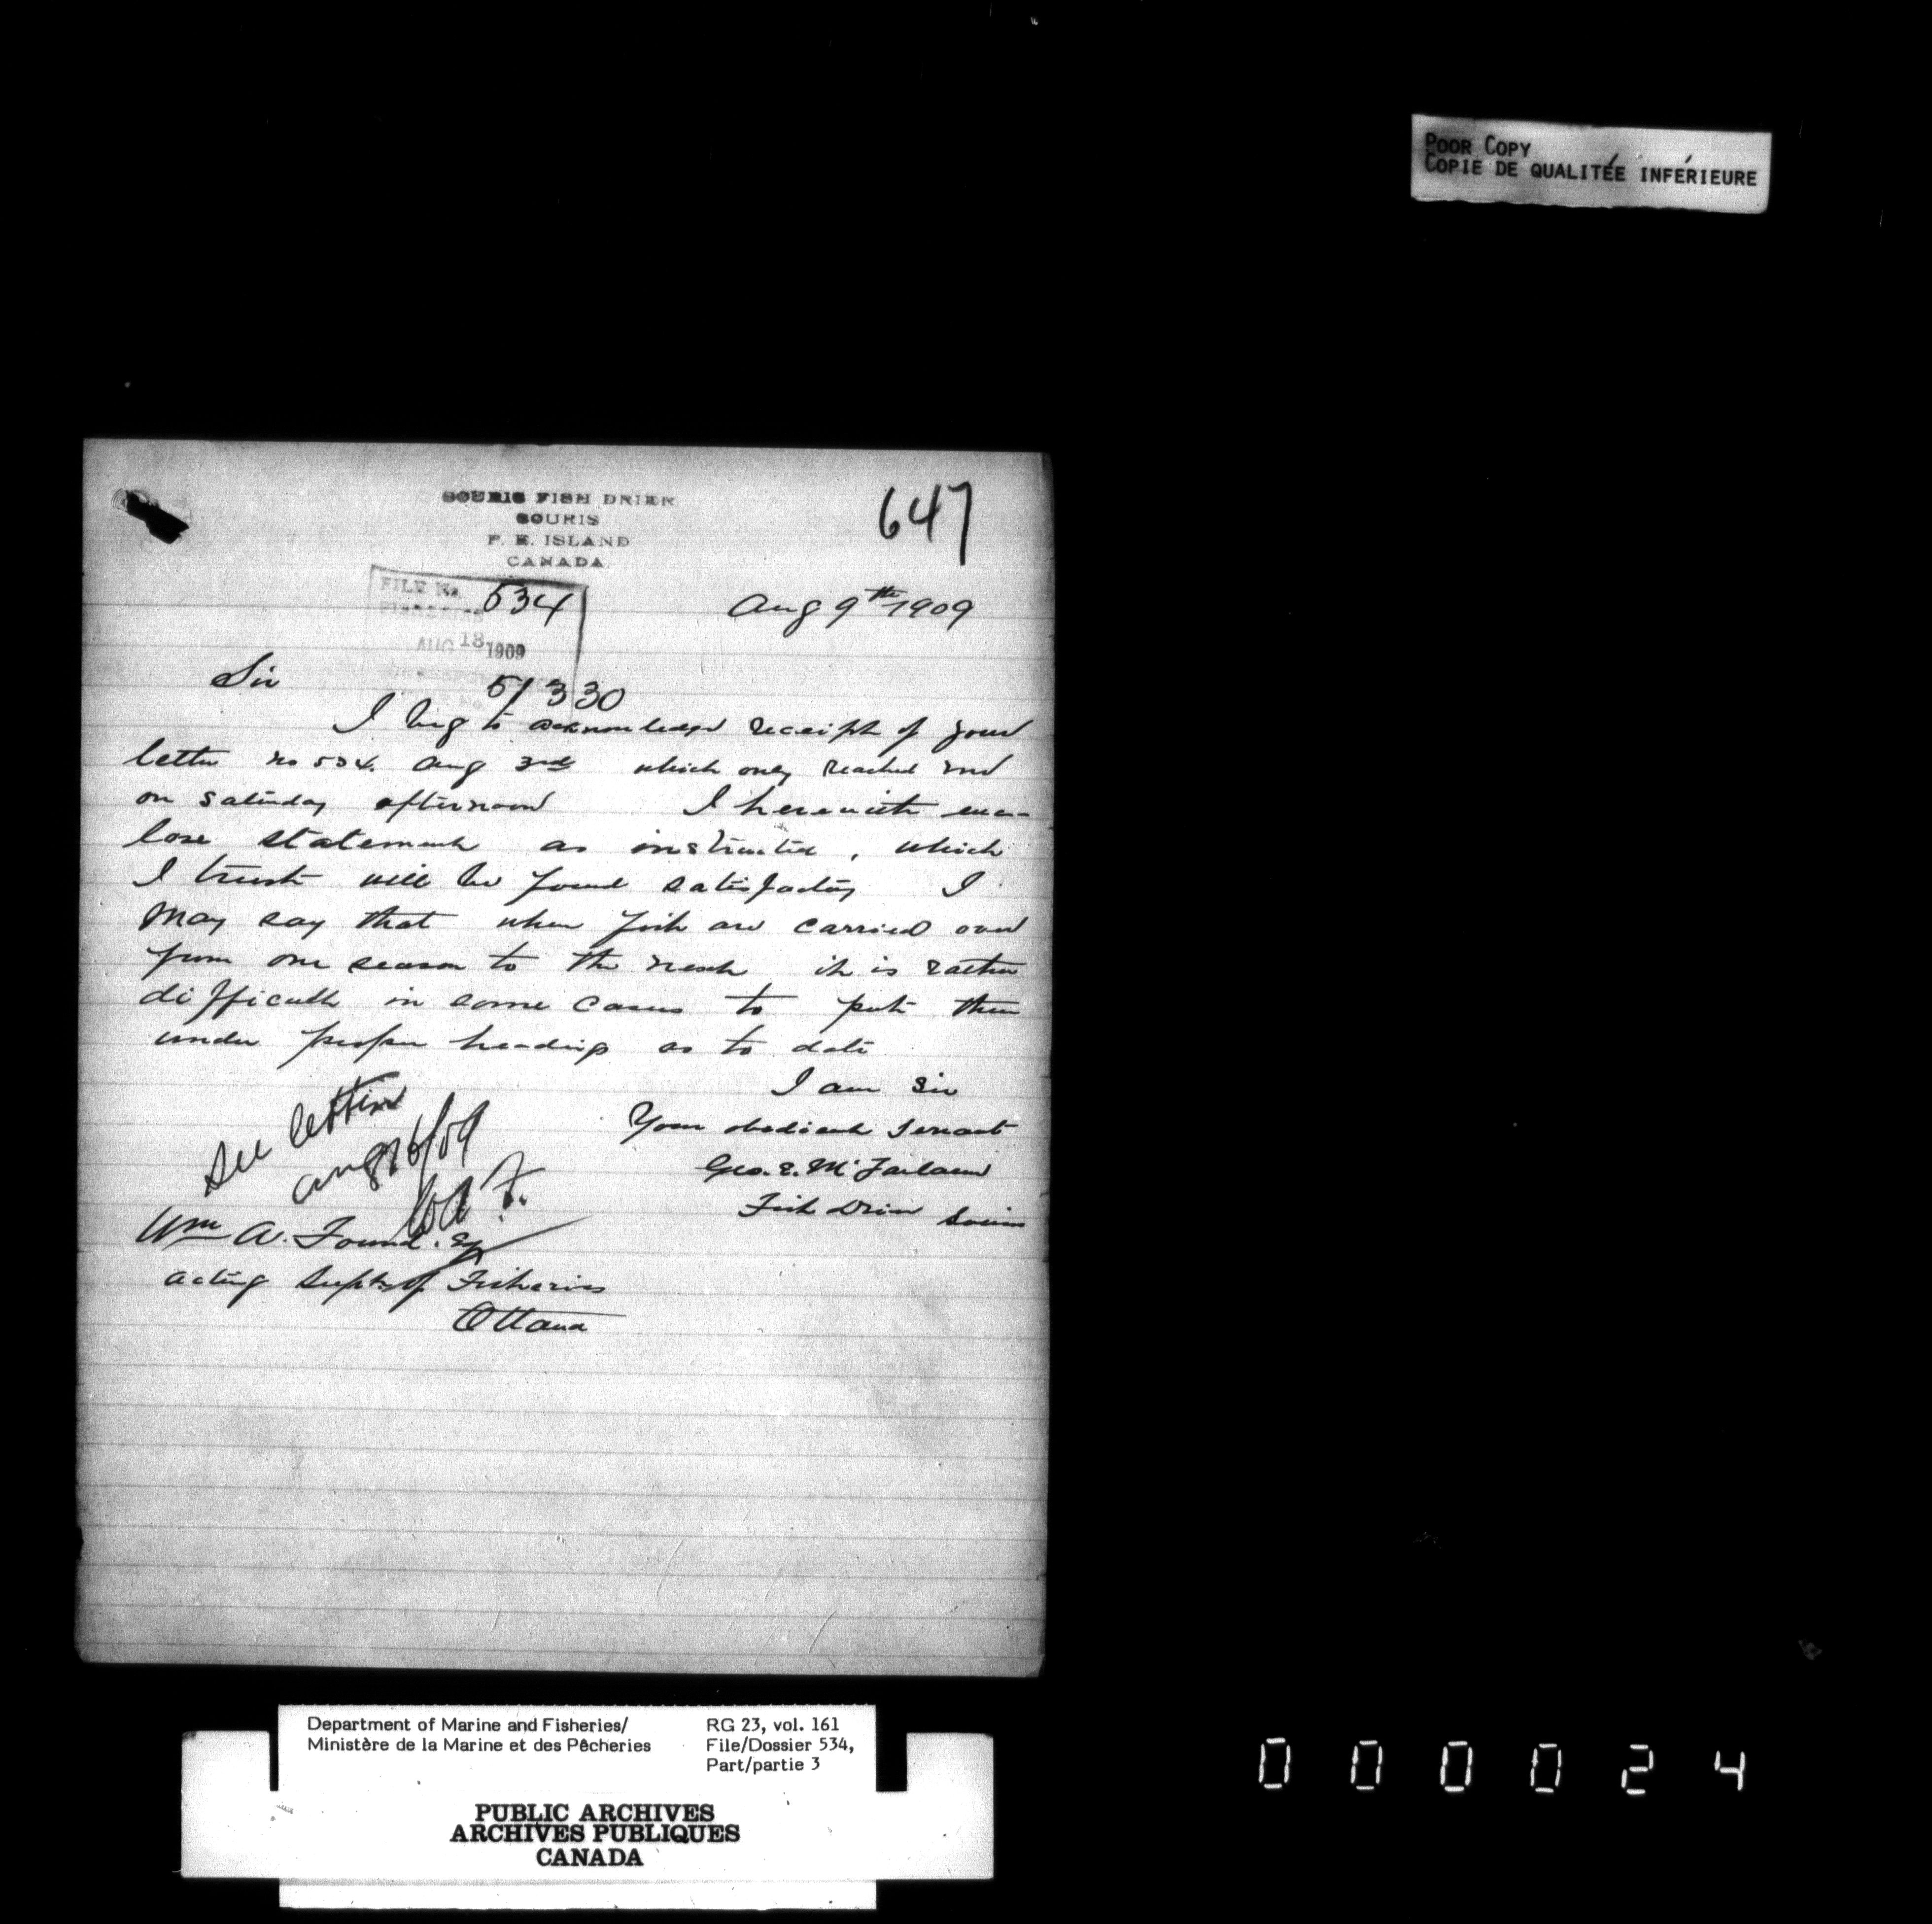 POOR COPY
COPIE DE QUALITÉE INFÉRIEURE
SOURIS FISH DRIER
SOURIS
P. E. ISLAND
CANADA
647
FILE No. 534
FISHERIES
AUG 18 1909
51330
Aug 9th 1909
Sir
I beg to acknowledge receipt of your
letter no 534. Aug 3rd which only reached me
on Saturday afternoon I herewith enc-
lose statement as instructed, which
I trust will be found satisfactory I
may say that when fish are carried over
from one season to the next it is rather
difficult in some cases to put them
under proper headings as to date
I am Sir
Your obedient Servant
Geo. E. McFarlane
Fish Drier Souris
See letter
aug 26/09
W A F.
Wm A. Found. Esq
acting Supt. of Fisheries
Ottawa
Department of Marine and Fisheries/
Ministère de la Marine et des Pêcheries
RG 23, vol. 161
File/Dossier 534,
Part/partie 3
PUBLIC ARCHIVES
ARCHIVES PUBLIQUES
CANADA
000024